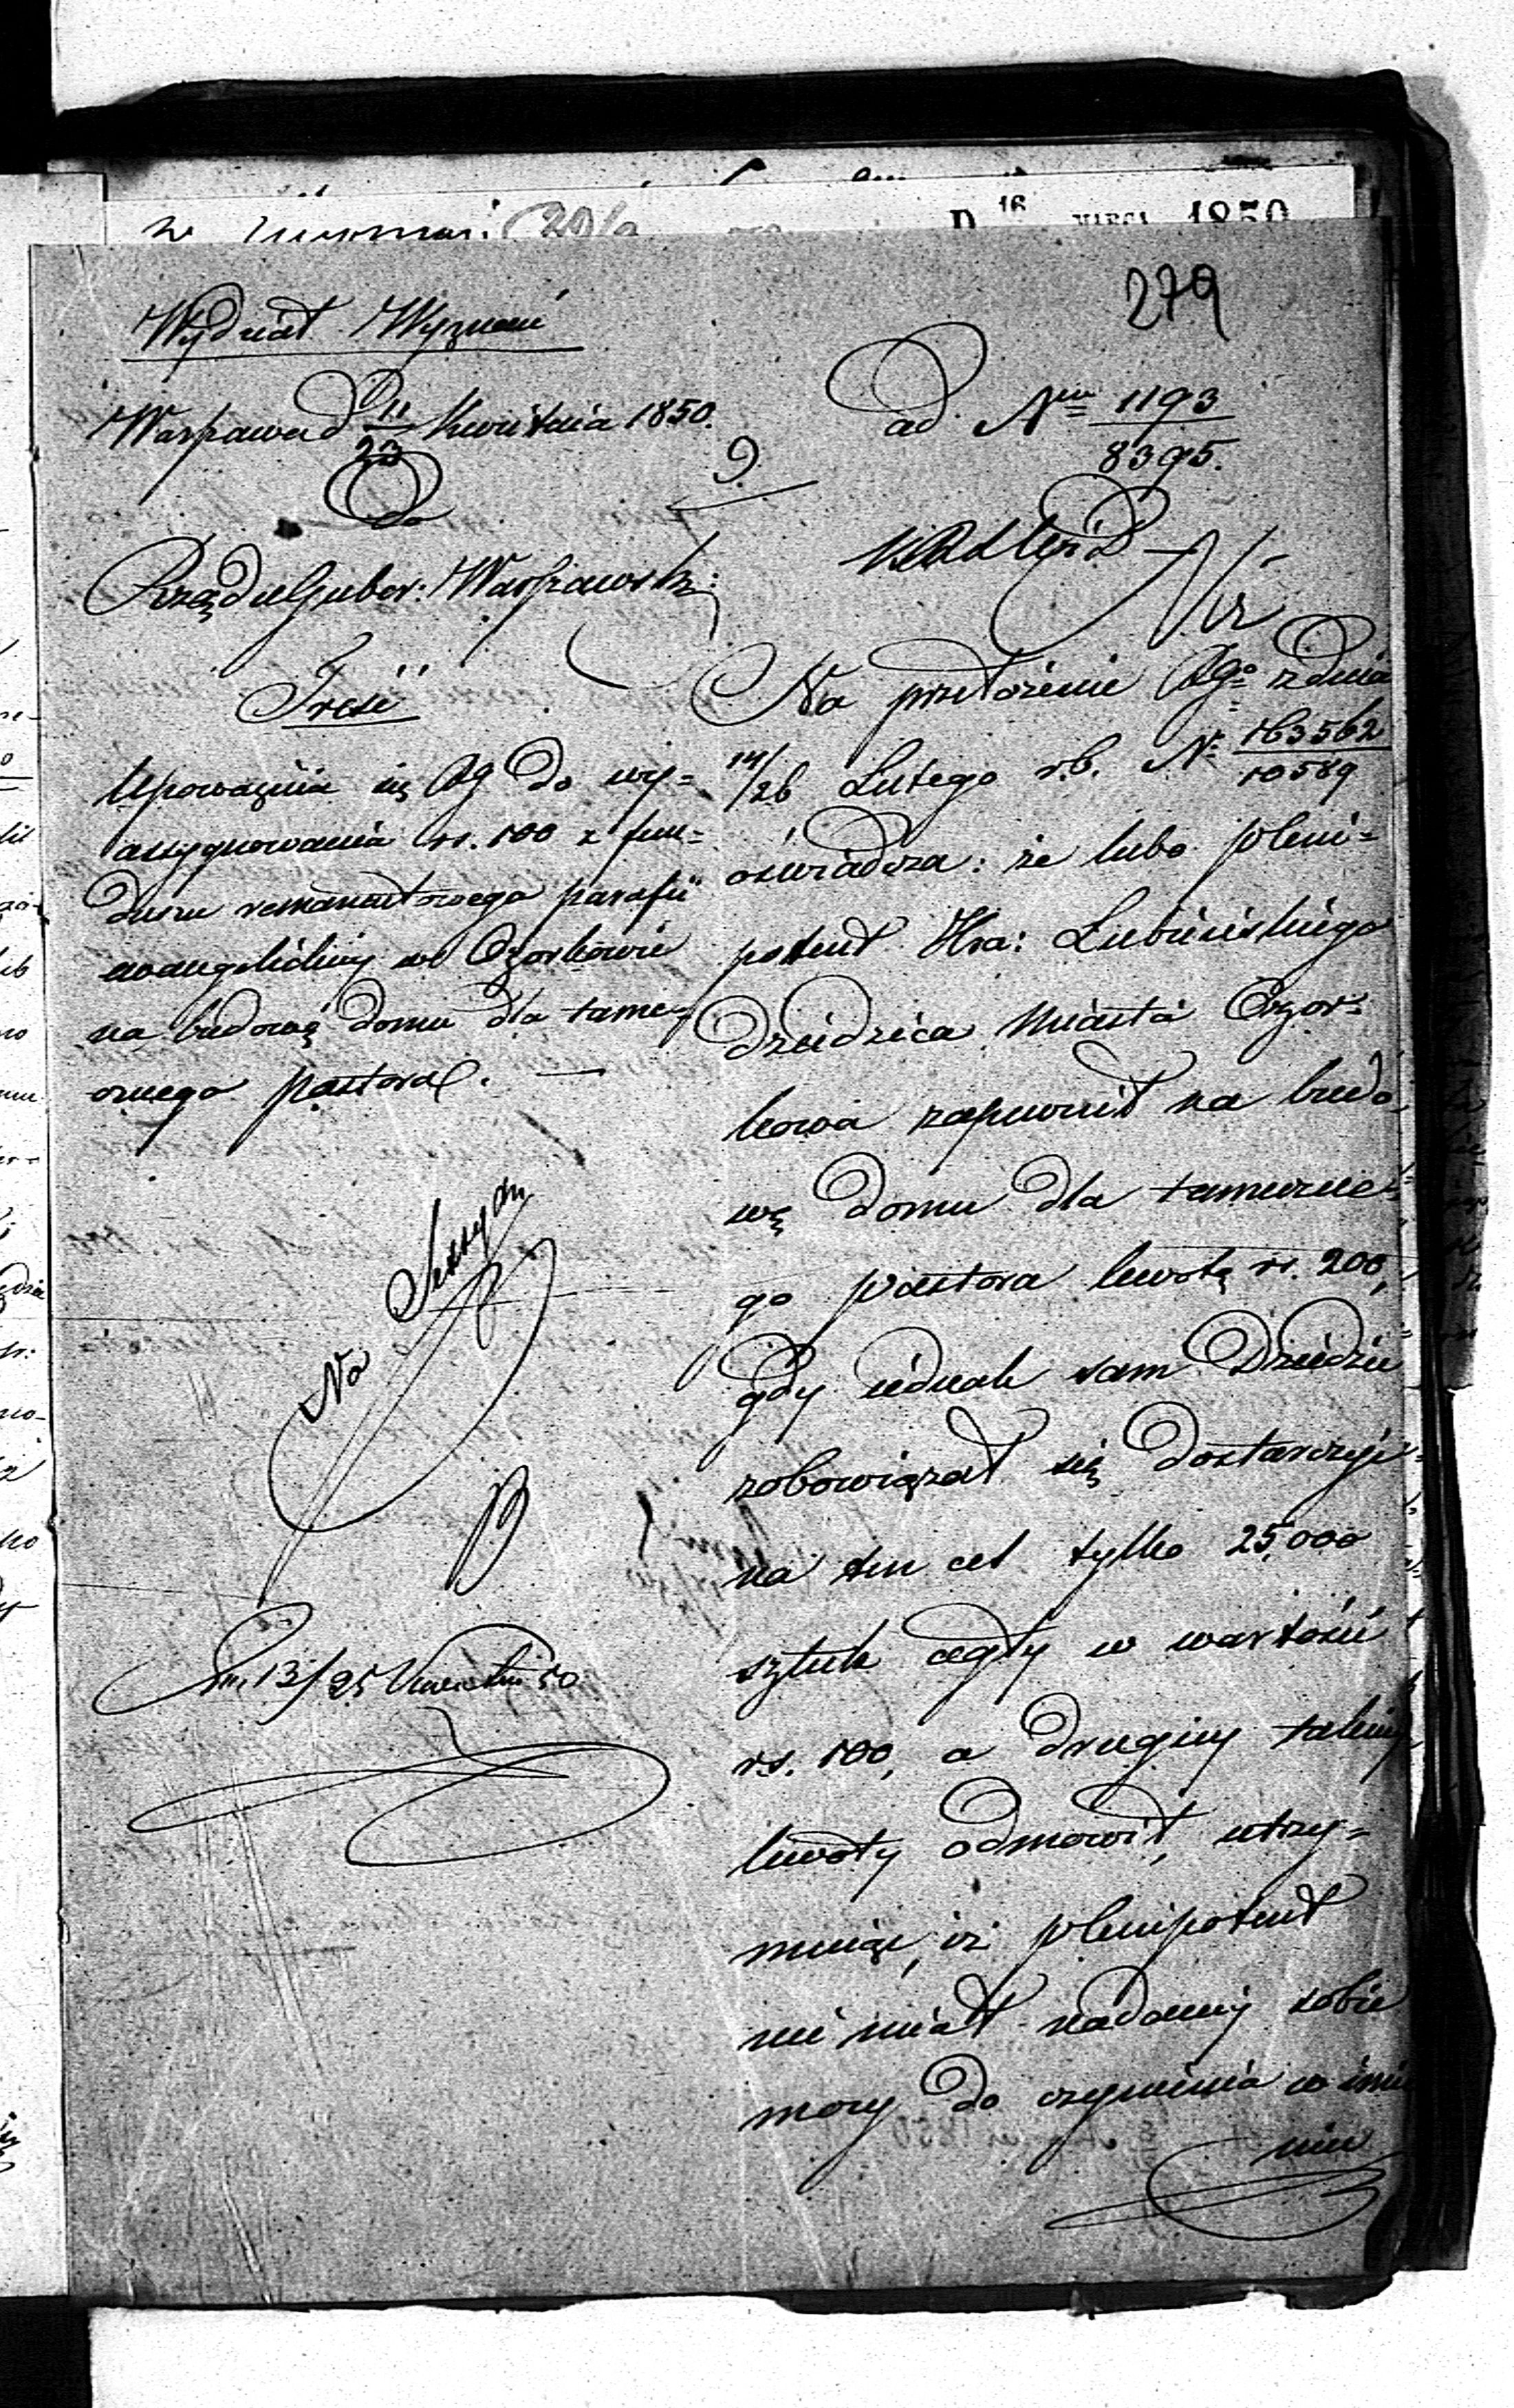 D 16 MARCA 1850
279
Wydział Wyznań
Warszawa d 11/23 Kwietnia 1850.
ad Nrum 1193/8395.
9.
Do
Rządu Guber: Warszawsk:
Treść
Upoważnia się RG do wy=
assygnowania rs. 100 z fun=
duszu remanentowego parafii
ewangelickiej w Ozorkowie
na budowę domu dla tame=
cznego pastora. —
Na Sessyą
Dn. 13/25 Kwietnia 50
Na przełożenie RGo z dnia
14/26 Lutego r.b. Nr 163562/10589
oświadcza: że lubo pleni=
potent Hra: Łubieńskiego
Dziedzica Miasta Ozor=
kowa zapewnił na budo
wę domu dla tameczne=
go pastora kwotę rs. 200,
gdy jednak sam Dziedzic
zobowiązał się dostarczyć
na ten cel tylko 25,000
sztuk cegły w wartości
rs. 100, a drugiej takiej
kwoty odmówił, utrzy=
mując, iż plenipotent
nie miał nadanej sobie
mocy do czynienia w imie
niu